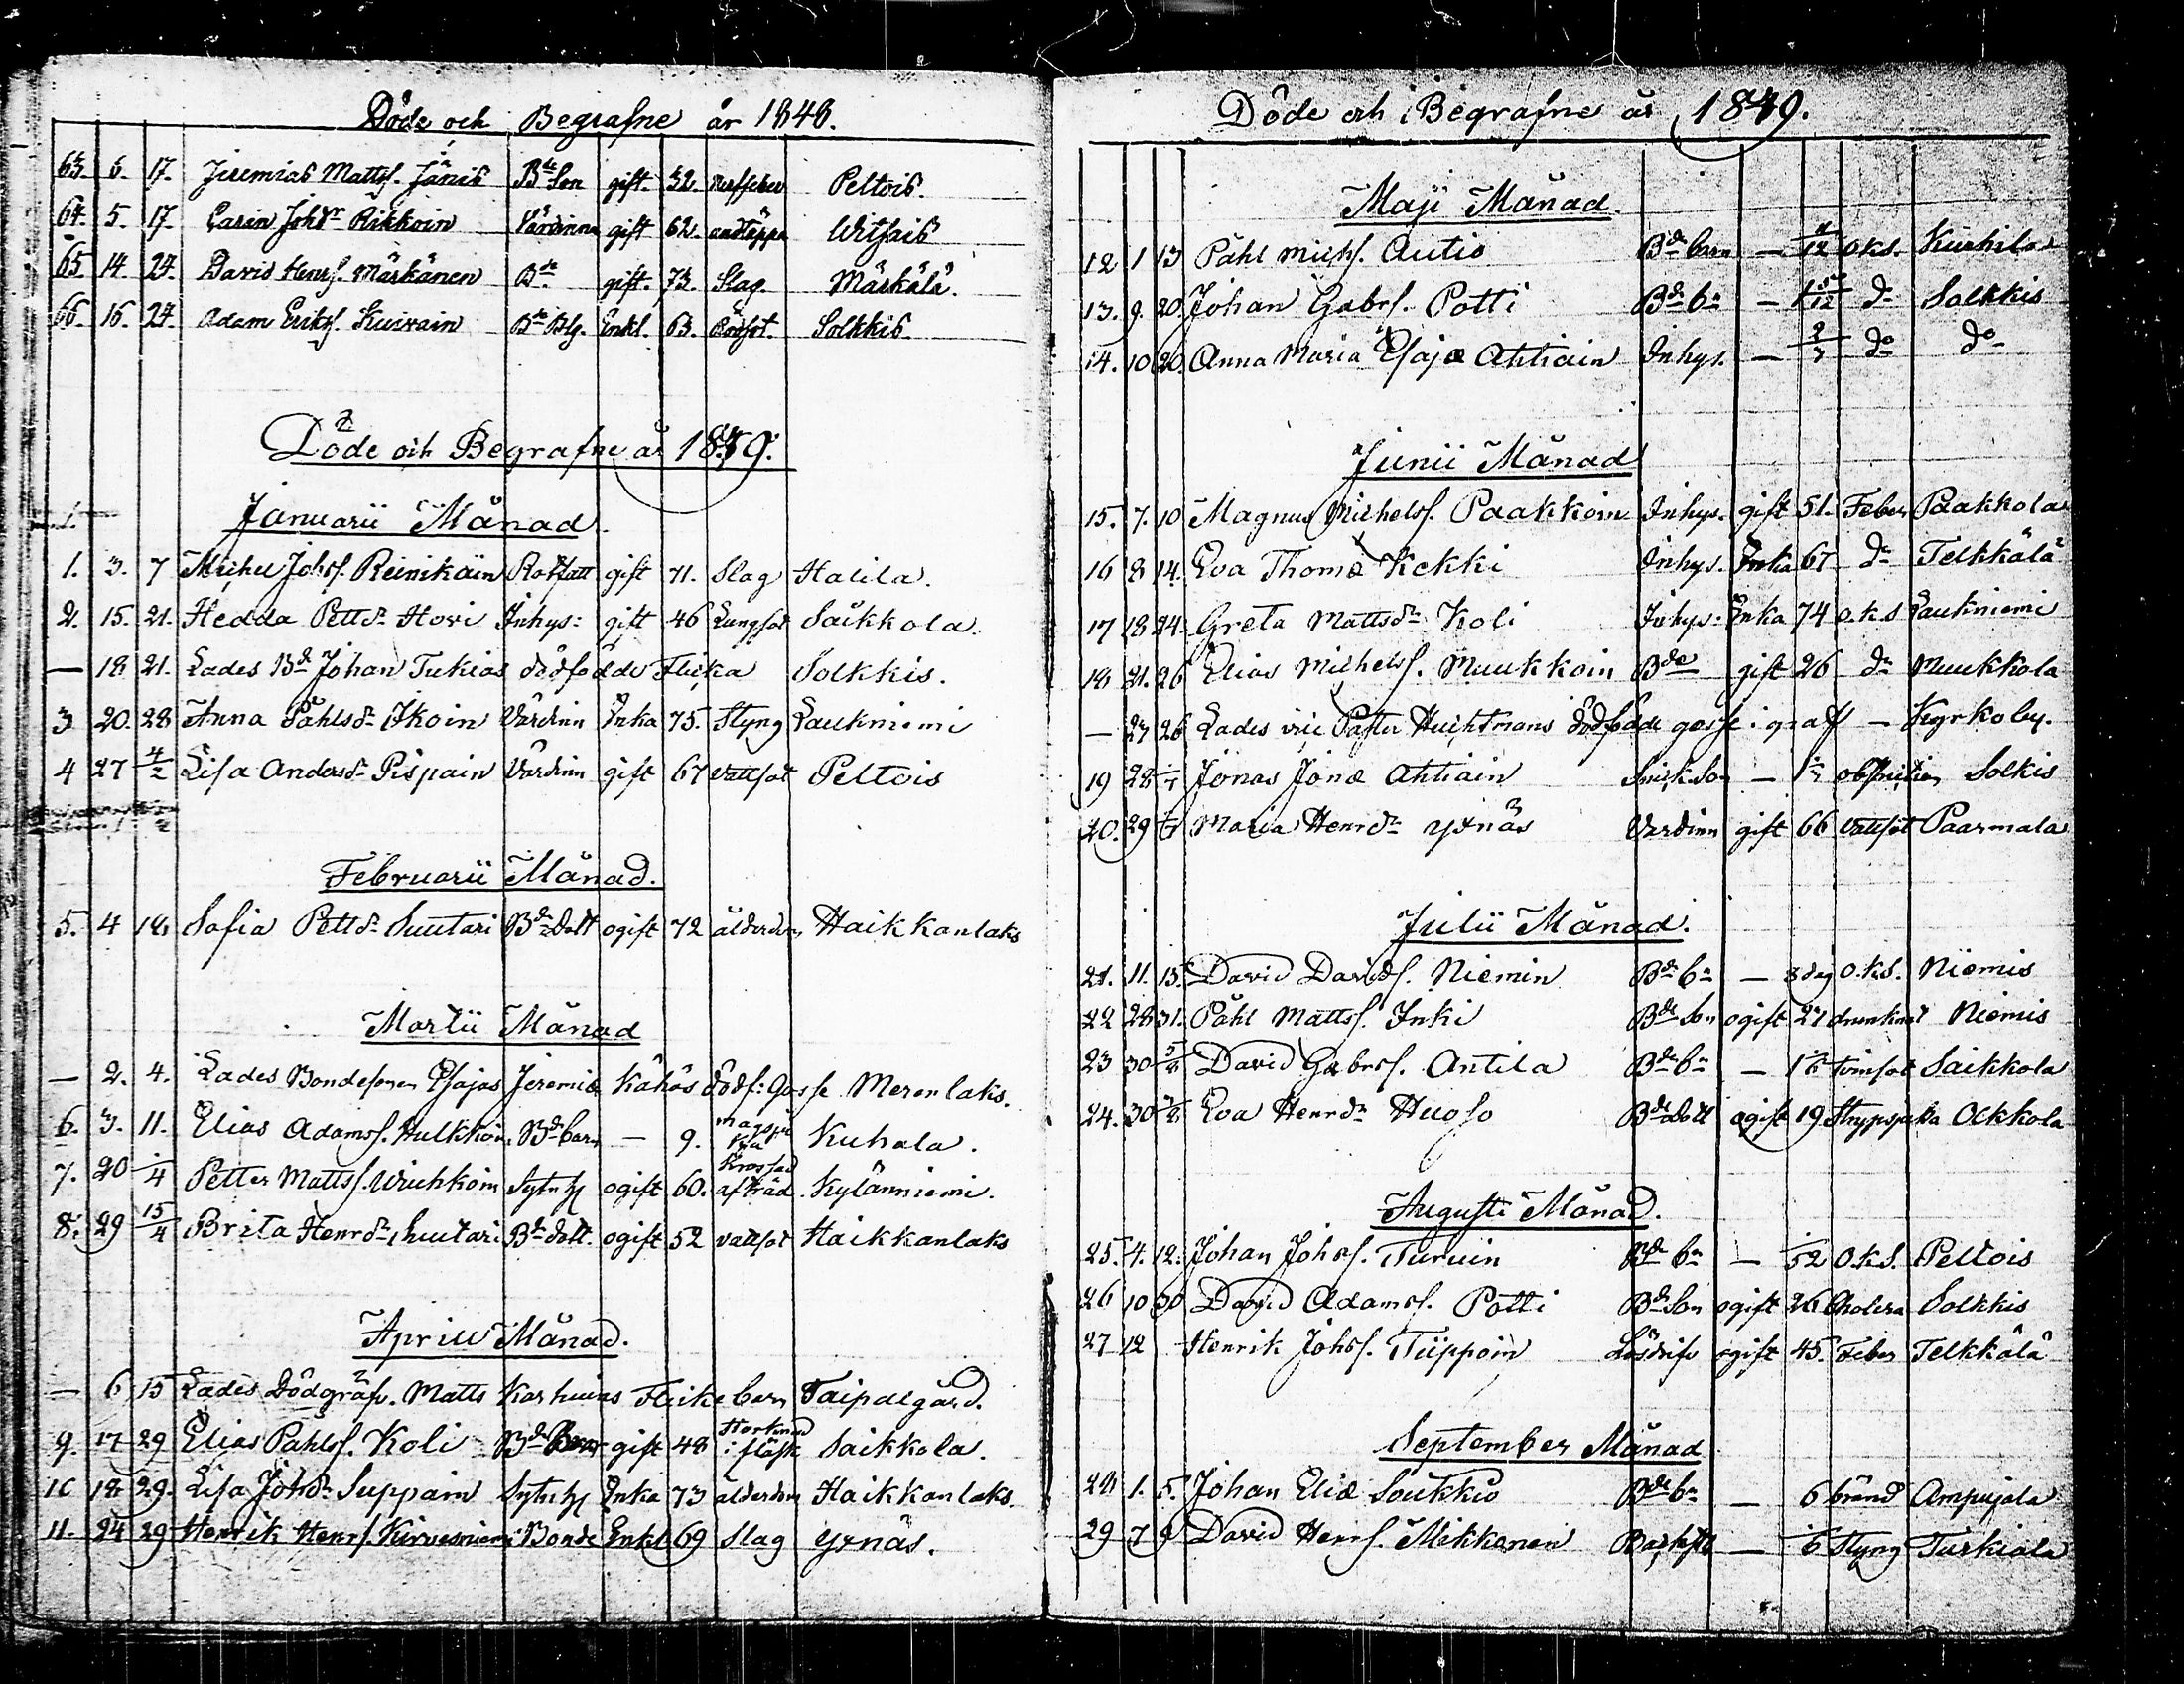 Döde och Begrafne år 1848.
63. 6. 17. Jeremias Mattss. Jänis Bde Son gift. 32 nerffeber Peltois.
64. 5. 17. Carin Johdr Rikkoin Värdinna gift 62. andtäppa Witsais
65 14. 24. David Henrs. Märkänen Bde gift. 73. Slag. Märkälä.
66. 16. 24. Adam Eriks. Kuivain Enkl. 63. Rödsot. Solkkis.
Döde och Begrafne år 1849.
1.
Januarii Månad.
1. 3. 7 Michel Johss. Reinikain Rotesatt gift 71. Slag Halila.
2. 15. 21. Hedda Pettdr Hovi Inhys: gift 46 Lungsot Saikkola.
— 18 21. Lades Bde Johan Tukias dödfödde Flicka Solkkis.
3 20. 28 Anna Påhlsdr Ikoin Värdinn Enka 75. Styng Laukniemi
4 27 4/2 Lisa Andersdr Pispain Värdinn gift 67 vattsot Peltois
Februarii Månad.
5. 4 18. Sofia Pettdr Suutari Bde Dott ogift 72 ålderdom Haikkanlaks
Martii Månad
— 2. 4. Lades Bondesonen Esajas Jeremiæ Kähös dödf: Gosse Merenlaks.
6. 3. 11. Elias Adamss. Hulkkoin Bde barn — 9. Kuhala.
7. 20 1/4 Petter Mattss. Wichkoin Sytn hj ogift 60. Krossad af träd. Kylänniemi.
8. 29 15/4 Brita Henrdr Suutari Bde dott. ogift 52 vattsot Haikkanlaks
Aprill Månad.
— 6 15 Lades Dödgräf. Matts Karhuias Flickebarn Taipalgård.
9. 17 29 Elias Påhlss. Koli Bde gift 48 i fläsk Saikkola.
10 18 29. Lisa Johdr Suppain Sytn hj Enka 73 ålderdom Haikkanlaks.
11. 24 29 Henrik Henrs. Kirvesniemi Bonde Enkl 69 Slag Yxnäs.
Döde och Begrafne år 1849.
Maji Månad.
12 1 13 Påhl Michs. Autio Bde barn — 4/12 o.k.s. Kurkila
13. 9. 20. Johan Gabrs. Potti Bde bn — do Solkkis
14. 10 20. Anna Maria Esajæ Ahtiain Inhys. — do do
Junii Månad
15. 7. 10 Magnus Michelss. Paakkoin Inhys. gift 51. Feber Paakkola
16 8 14. Eva Thomæ Kekki Inhys. Enka 67 do Telkkälä
17 18 24. Greta Mattsdr Koli Inhys: Enka 74 o.k.s Laukniemi
18 21. 26 Elias Michelss. Muukkoin Bde gift 26 do Muukkola
— 24 26 Lades vice Pastor Huchtmans dödfödde gosse i graf — Kyrkoby.
19 28 1/7 Jonas Jonæ Ahtiain — Solkis
20. 29 Maria Henrdr Yxnäs Värdinn gift 66 vattsot Paarmala
Julii Månad.
21. 11. 15. David Davids. Niemin Bde bn — 8 dag o.k.s. Niemis
22 28 31. Påhl Mattss. Inki Bde Son ogift 27 drunknat Niemis
23 30 5/8 David Gabrs. Antila Bde bn — Saikkola
24. 30 5/8 Eva Henrdr Huoso Bde Dott ogift 19 Strypsjuka Ackkola
Augusti Månad.
25. 4. 12. Johan Johss. Turuin Bde bn — 1/52 o.k.s. Peltois
26 10 30 David Adamss. Potti Bde Son ogift 26 Cholera Solkkis
27 12 Henrik Johss. Tiippoin Lösdrifv ogift 45. Feber Telkkälä
September Månad
28 1. 5. Johan Eliæ Soukkio Bde bn — 6 bränd Ampujala
29 7 9 David Henrs. Mikkonen — Styng Turkiala